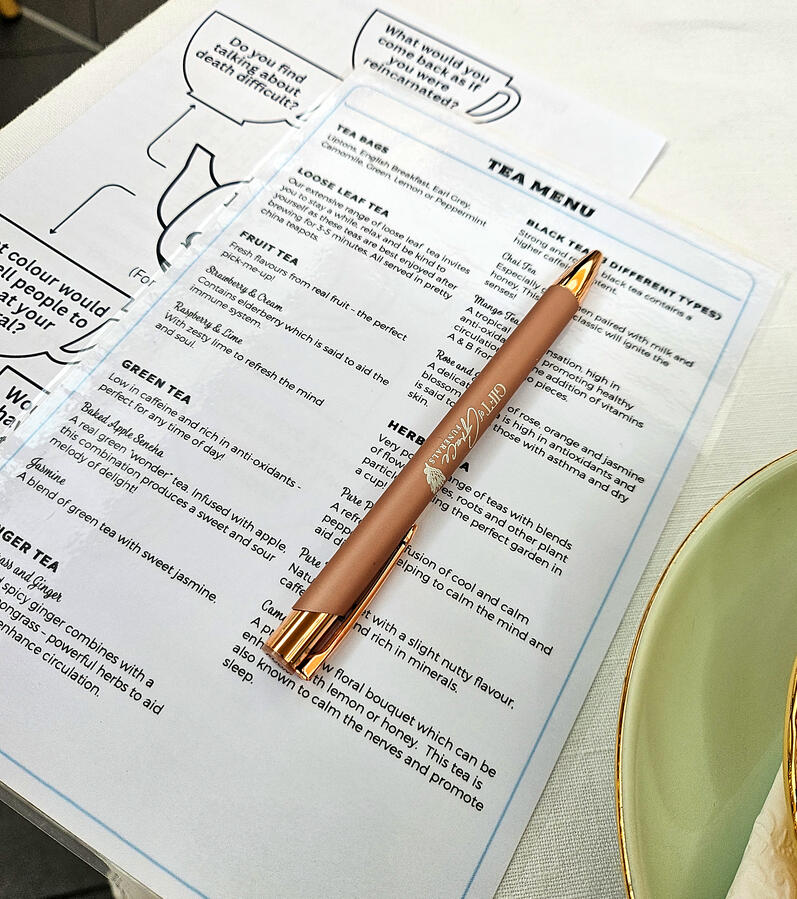 Do you find
talking about
death difficult?
What would you
come back as if
you were
reincarnated?
t colour would
ell people to
at your
ral?
(For
Wo
hav
TEA MENU
TEA BAGS
Liptons, English Breakfast, Earl Grey,
Camomile, Green, Lemon or Peppermint
LOOSE LEAF TEA
Our extensive range of loose leaf tea invites
you to stay a while, relax and be kind to
yourself as these teas are best enjoyed after
brewing for 3-5 minutes. All served in pretty
china teapots.
FRUIT TEA
Fresh flavours from real fruit - the perfect
pick-me-up!
Strawberry & Cream
Contains elderberry which is said to aid the
immune system.
Raspberry & Lime
With zesty lime to refresh the mind
and soul.
GREEN TEA
Low in caffeine and rich in anti-oxidants -
perfect for any time of day!
Baked Apple Sencha
A real green 'wonder' tea. Infused with apple,
this combination produces a sweet and sour
melody of delight!
Jasmine
A blend of green tea with sweet jasmine.
NGER TEA
ass and Ginger
d spicy ginger combines with a
ongrass - powerful herbs to aid
enhance circulation.
BLACK TEA DIFFERENT TYPES)
Strong and black tea contains a
higher caffe tent.
Chai Tea
Especially en paired with milk and
honey. This classic will ignite the
senses!
Mango Tea
A tropical nsation, high in
anti-oxida promoting healthy
circulatio e addition of vitamins
A & B fro o pieces.
Rose and
A delica of rose, orange and jasmine
blossom is high in antioxidants and
is said t those with asthma and dry
skin.
HERB A
Very po nge of teas with blends
of flow es, roots and other plant
partic ng the perfect garden in
a cup!
Pure P
A refr fusion of cool and calm
pepp elping to calm the mind and
aid d
Pure
Natu t with a slight nutty flavour,
caffe nd rich in minerals.
Cam
A p w floral bouquet which can be
enh with lemon or honey. This tea is
also known to calm the nerves and promote
sleep.
GIFT of Grace
FUNERALS